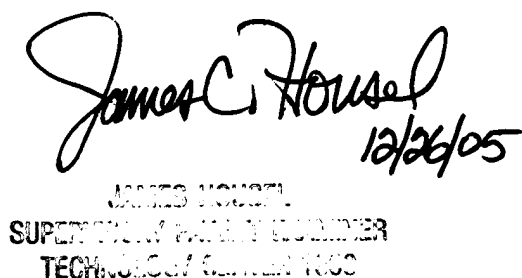 James C. Housel
12/26/05
JAMES HOUSEL
SUPERVISORY PATENT EXAMINER
TECHNOLOGY CENTER